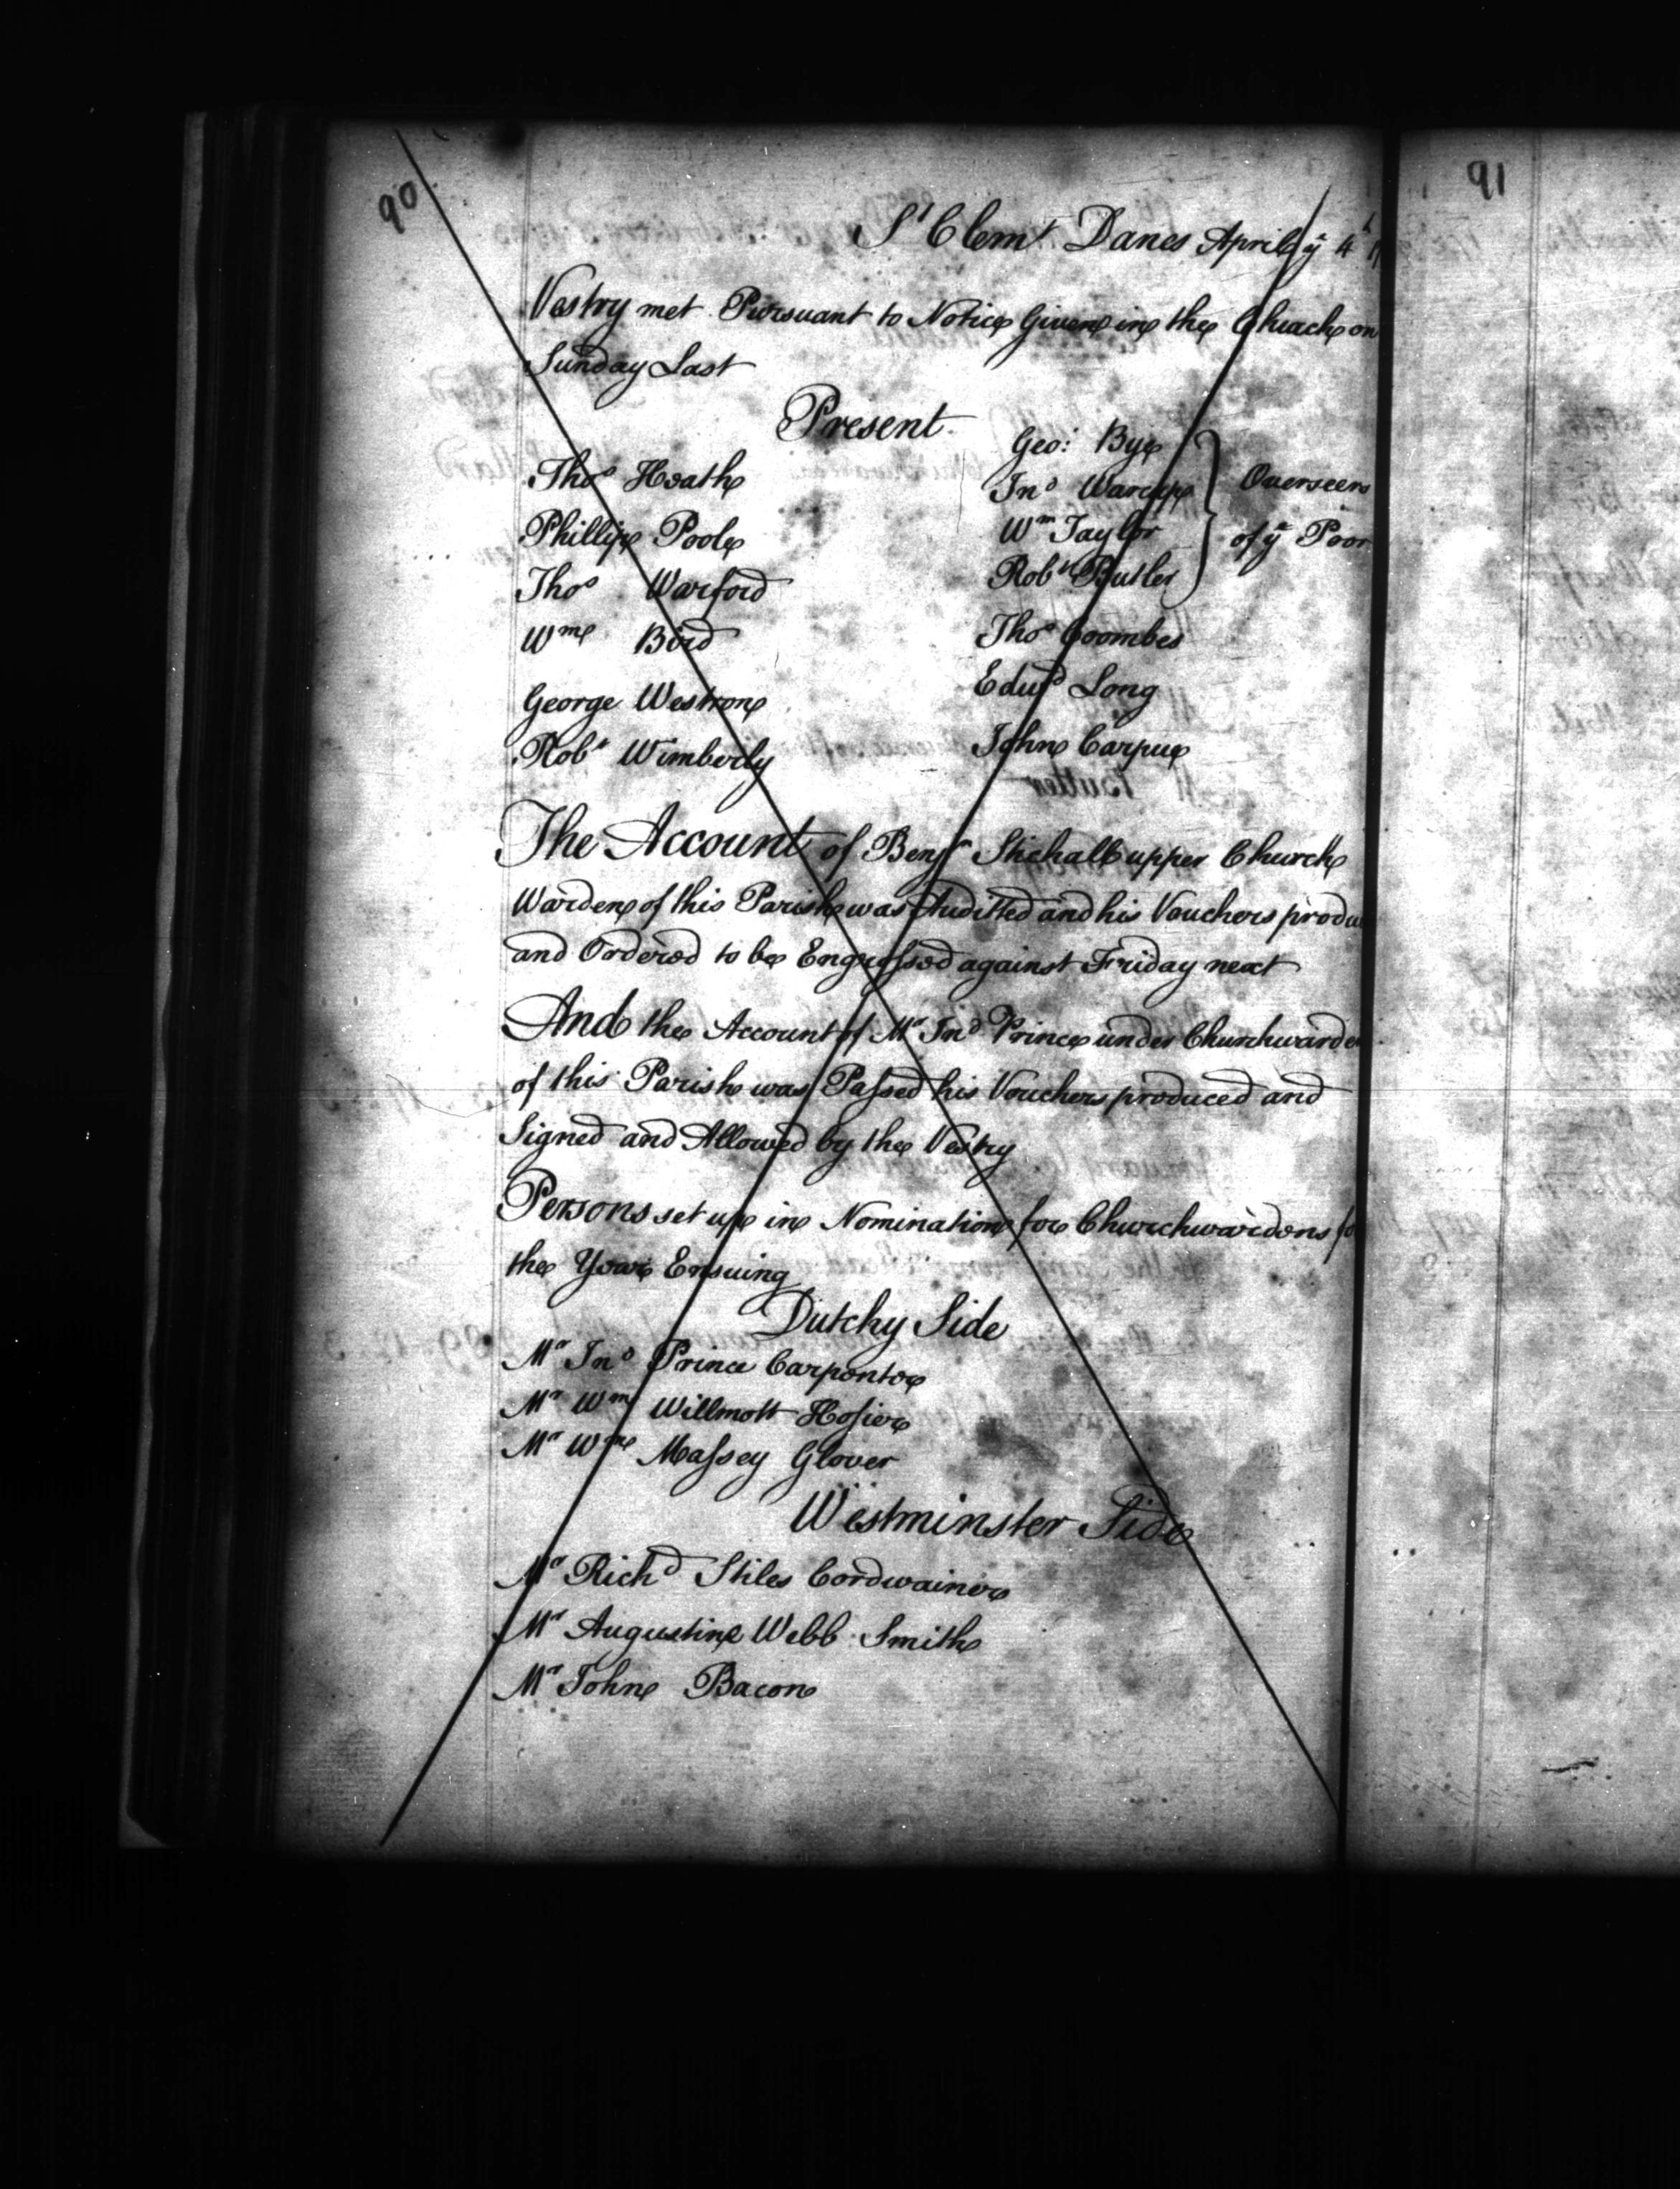 90
91
St Clemt Danes April ye 4th
Vestry met Pursuant to Notice Given in the Church on
Sunday Last
Present
Thos Heath
Phillip Poole
Thos Warford
Wm Bird
George Westron
Robt Wimberly
Geo: Bye
Jno Warcup
Wm Taylor
Robt Butler
Overseers
of ye Poor
Thos Coombes
Edwd Long
John Carpue
The Account of Benjn Stichall upper Church
Warden of this Parish was Auditted and his Vouchers produ
and Ordered to be Engrossed against Friday next
And the Account of Mr Jno Prince under Churchwarde
of this Parish was Passed his Vouchers produced and
Signed and Allowed by the Vestry
Persons set up in Nomination for Churchwardens fo
the Year Ensuing
Dutchy Side
Mr Jno Prince Carpenter
Mr Wm Willmott Hosier
Mr Wm Massey Glover
Westminster Side
Mr Richd Stiles Cordwainer
Mr Augustine Webb Smith
Mr John Bacon